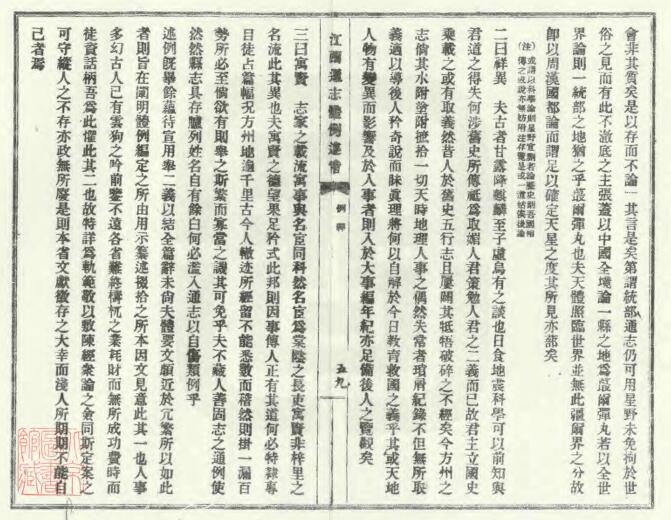 會非其質矣是以存而不論」其言是矣第謂統部通志仍可用星野未免拘於世
俗之見而有此不澈底之主張蓋以中國全境論一縣之地爲蕞爾彈丸若以全世
界論則一統部之地猶之乎蕞爾彈丸也夫天體照臨世界並無此疆爾界之分故
卽以周漢國都論而謂足以確定天星之度其所見亦蔀矣
二曰祥異　夫古者甘露降麒麟至子虛烏有之談也日食地震科學可以前知與
君道之得失何涉舊史所傳祗爲取媚人君策勉人君之二義而已故君主立國史
乘載之或有取義然昔人於舊史五行志且屢闢其牴牾破碎之不經矣今方州之
志倘其水附盜附摭拾一切天時地理人事之偶然失常者瑣屑紀錄不但無所取
義適以導後人矜奇說而昧眞理將何以自解於今日敎育救國之義乎其或天地
人物有變異而影響及於人事者則入於大事編年紀亦足備後人之覽觀矣
江西通志體例述恉
例釋
五九
三曰寓賢　志家之載流寓事與名宦同科然名宦爲棠陰之長吏寓賢非梓里之
名流此其異也夫寓賢之德望果足矜式此邦則因事傳人正有其道何必特隸專
目徒占篇幅况方州地逾千里古今人轍迹所經留不能悉數而蓓然則掛一漏百
勢所必至倘欲有則舉之斯繁而寡當之譏其可免乎夫不藏人善固志之通例使
然然縣志具存臚列姓名自有餘白何必濫入通志以自傷類例乎
述例旣畢餘蘊待宣用舉二義以結全篇辭未尙夫體要文願近於宂繁所以如此
者則旨在闡明體例編定之所由用示纂述掇拾之所本因文見意此其一也人事
多幻古人已有雲狗之吟前鑒不遠各省難終檮杌之業耗財而無所成功費時而
徒資話柄吾爲此懼此其二也故特詳爲軌範敬以敷陳經衆論之僉同斯定案之
可守縱人之不存亦政無所廢是則本省文獻徵存之大幸而淺人所期期不能自
已者焉